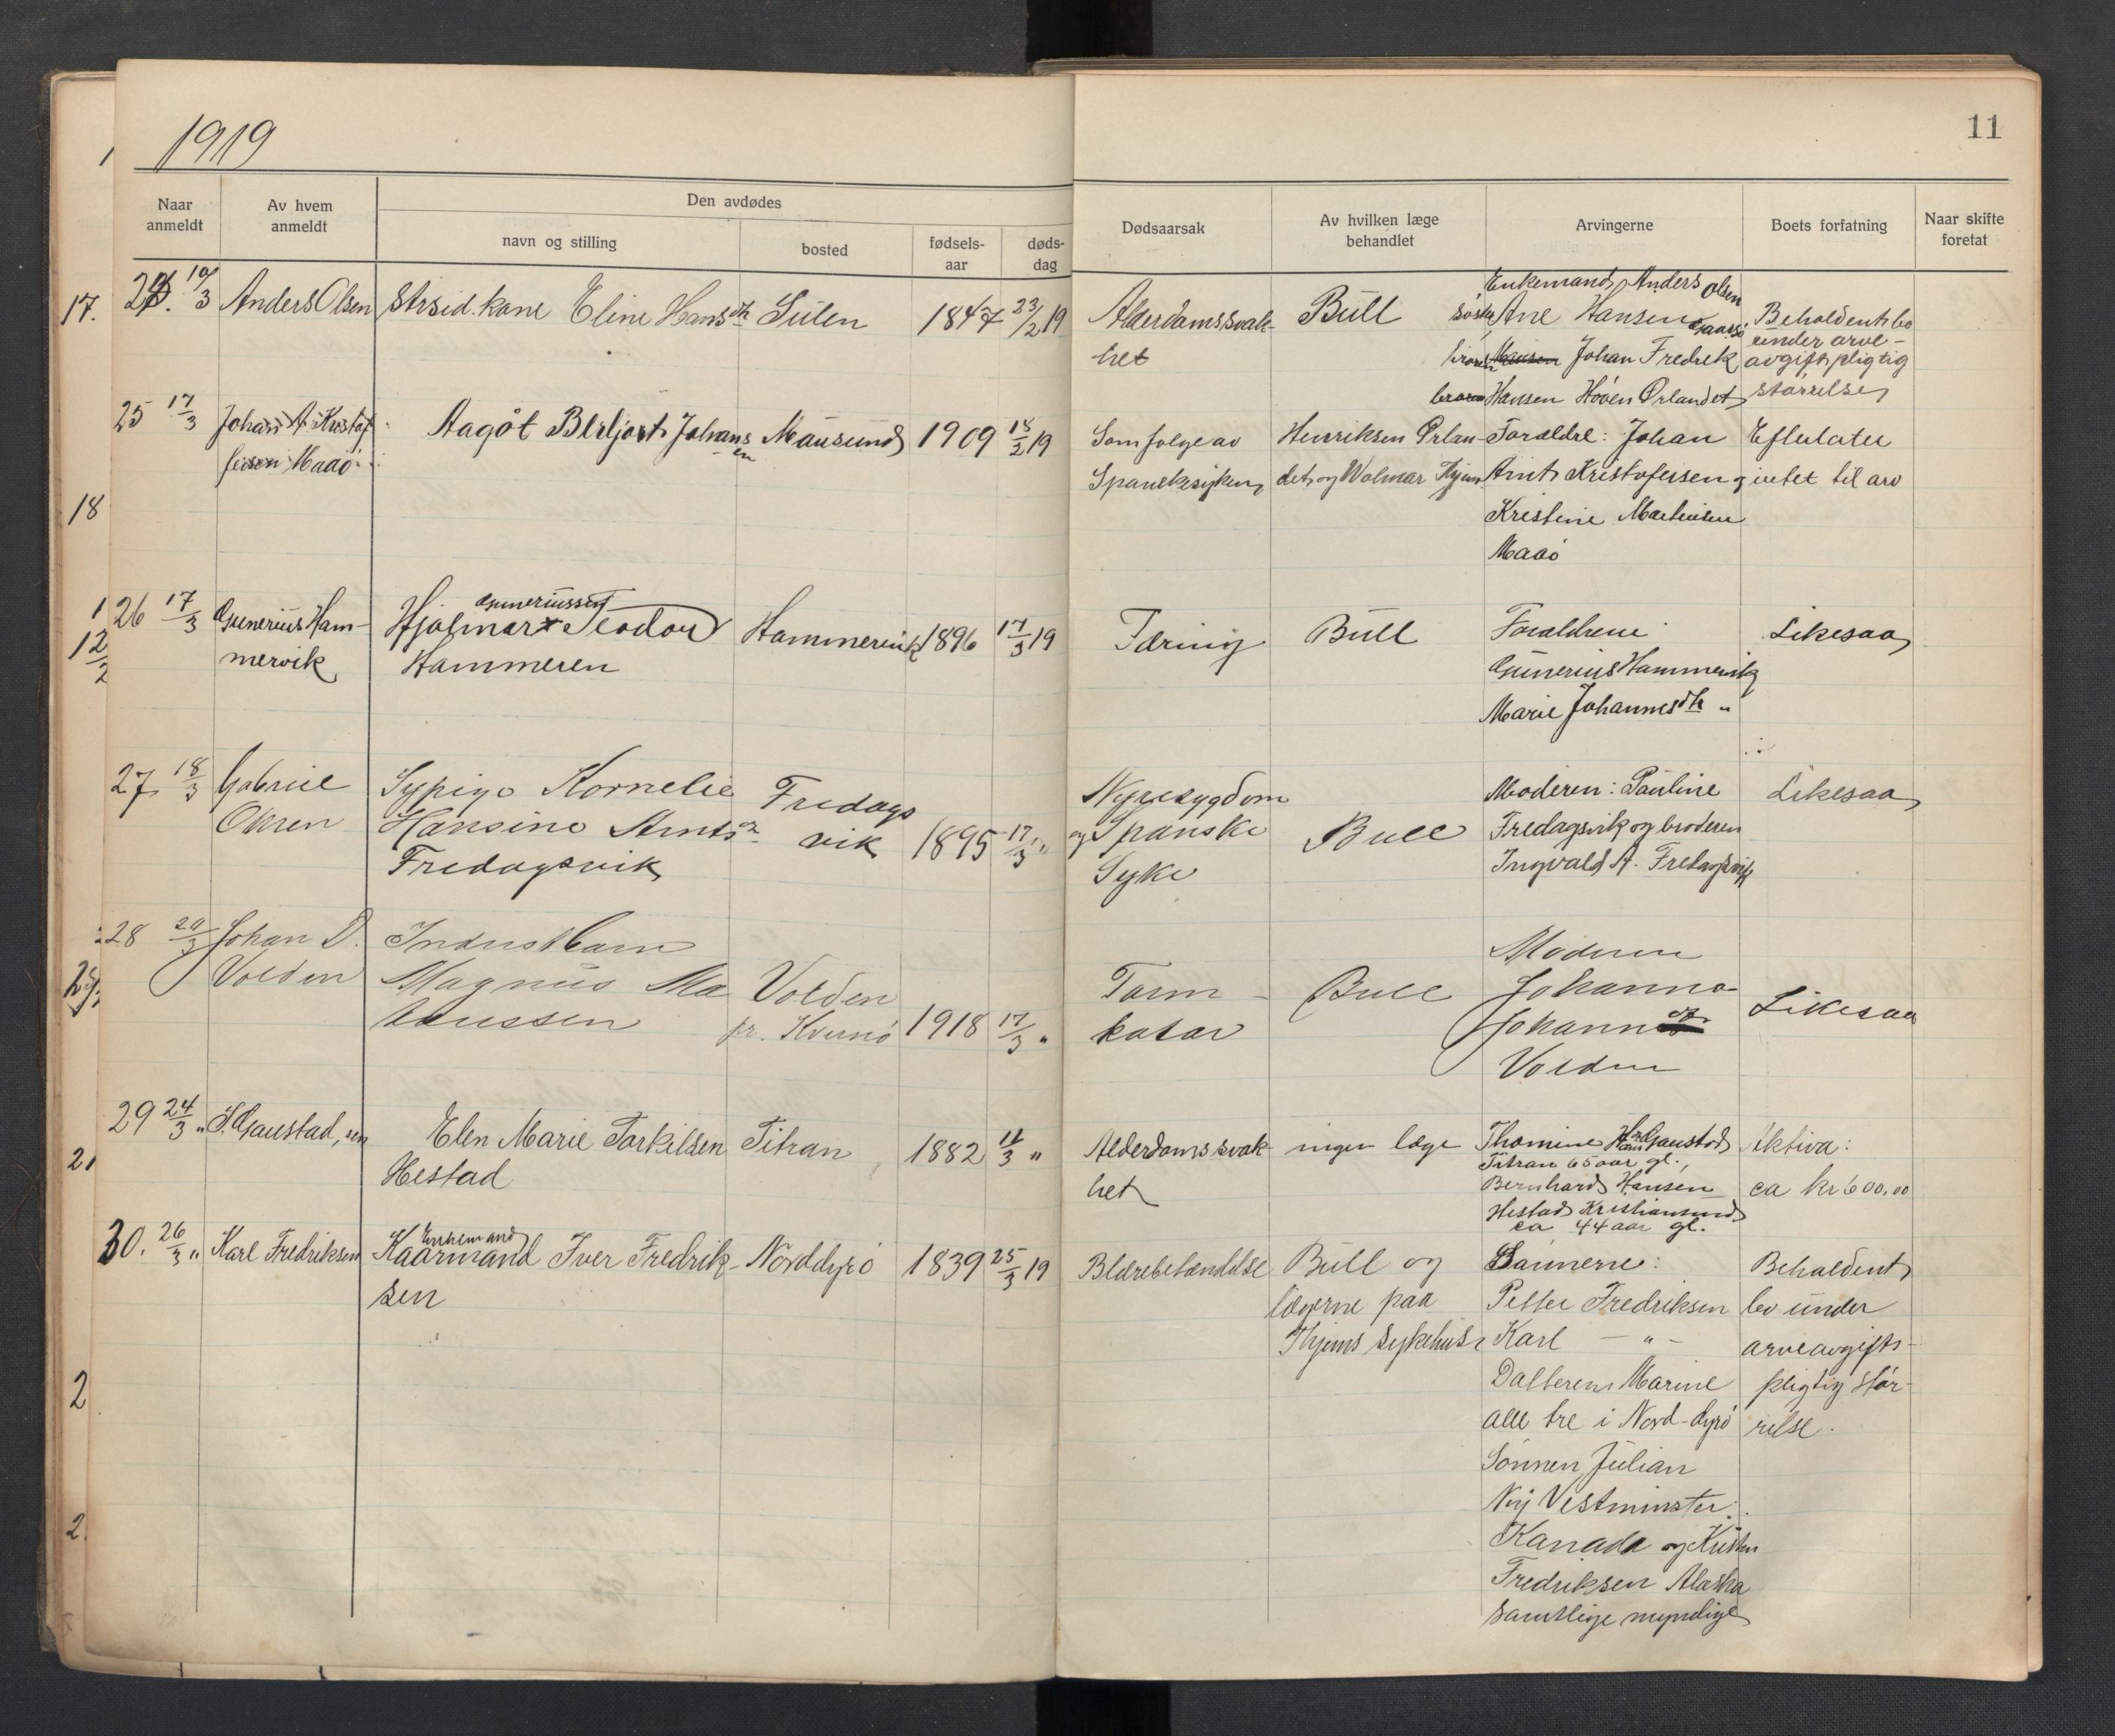 1919
11
Naar anmeldt
Av hvem anmeldt
Den avdødes
navn og stilling
bosted
fødsels-aar
døds-dag
Dødsaarsak
Av hvilken læge behandlet
Arvingerne
Boets forfatning
Naar skifte foretat
17.
18
1
12/2
21
2
2.
10/3 Anders Olsen
Strsid. kone Eline Hansdtr
Sulen
1847
23/2 19
Alderdomssvak-
het
Bull
Enkemand Anders Olsen
Søster Ane Hansen
Johan Fredrek
Hansen Høven Ørlandet
Beholdent bo
under arve-
avgiftspligtig
størrelse
25 17/3
Johan A Kristof
fersen Maaø
Aagot Berljot Johans
en
Mausund
1909
18/2 19
Som følge av
Spanskesyken
Henriksen Ørlan-
det og Wolmar Thjem
Forældre: Johan
Arnt Kristofersen og
Kristine Martinsen
Maaø
Efterlater
intet til arv
26 17/3
Gunerius Ham-
mervik
Guneriussen
Hjalmar Teodor
Hammeren
Hammervik
1896
17/3 19
Tæring
Bull
Forældrene
Gunerius Hammervik
Marie Johannesdtr "
Likesaa
27 18/3
Gabriel
Olsen
Sypige Kornelie
Hansine Arnts
Fredagsvik
Fredags
vik
1895
17/3 "
Nyresygdom
og Spanske
Syke
Bull
Moderen: Pauline
Fredagsvik og broderen
Ingvald A. Fredagsvik
Likesaa
28 20/3
Johan D.
Volden
Indust barn
Magnus Ma
Volden
pr. Kvernø
1918
17/3 "
Tarm-
katar
Bull
Moderen
Johanna
Volden
Likesaa
29 24/3 "
Gaustad, sen
Elen Marie Torkilsen
Hestad
Titran
1882
11/3 "
Alderdomssvak-
het
ingen læge
Thomine Gaustad
Titran 65 aar gl.,
Bernhard Hansen
Hestad Kristiansund
ca 44 aar gl.
Aktiva:
ca kr 600,00
30. 26/3 "
Karl Fredriksen
Enkemand
Kaarmand Iver Fredrik-
sen
Norddyrø
1839
25/3 19
Blærebetændelse
Bull og
lægerne paa
Thjems sykehus
Sønnerne:
Petter Fredriksen
Karl — " —
Datteren Marine
alle tre i Nord-dyrø
Sønnen Julian
Ny Vestminster
Kanada og Kristen
Fredriksen Alaska
samtlige myndige
Beholdent
bo under
arveavgifts-
pligtig stør-
relse.